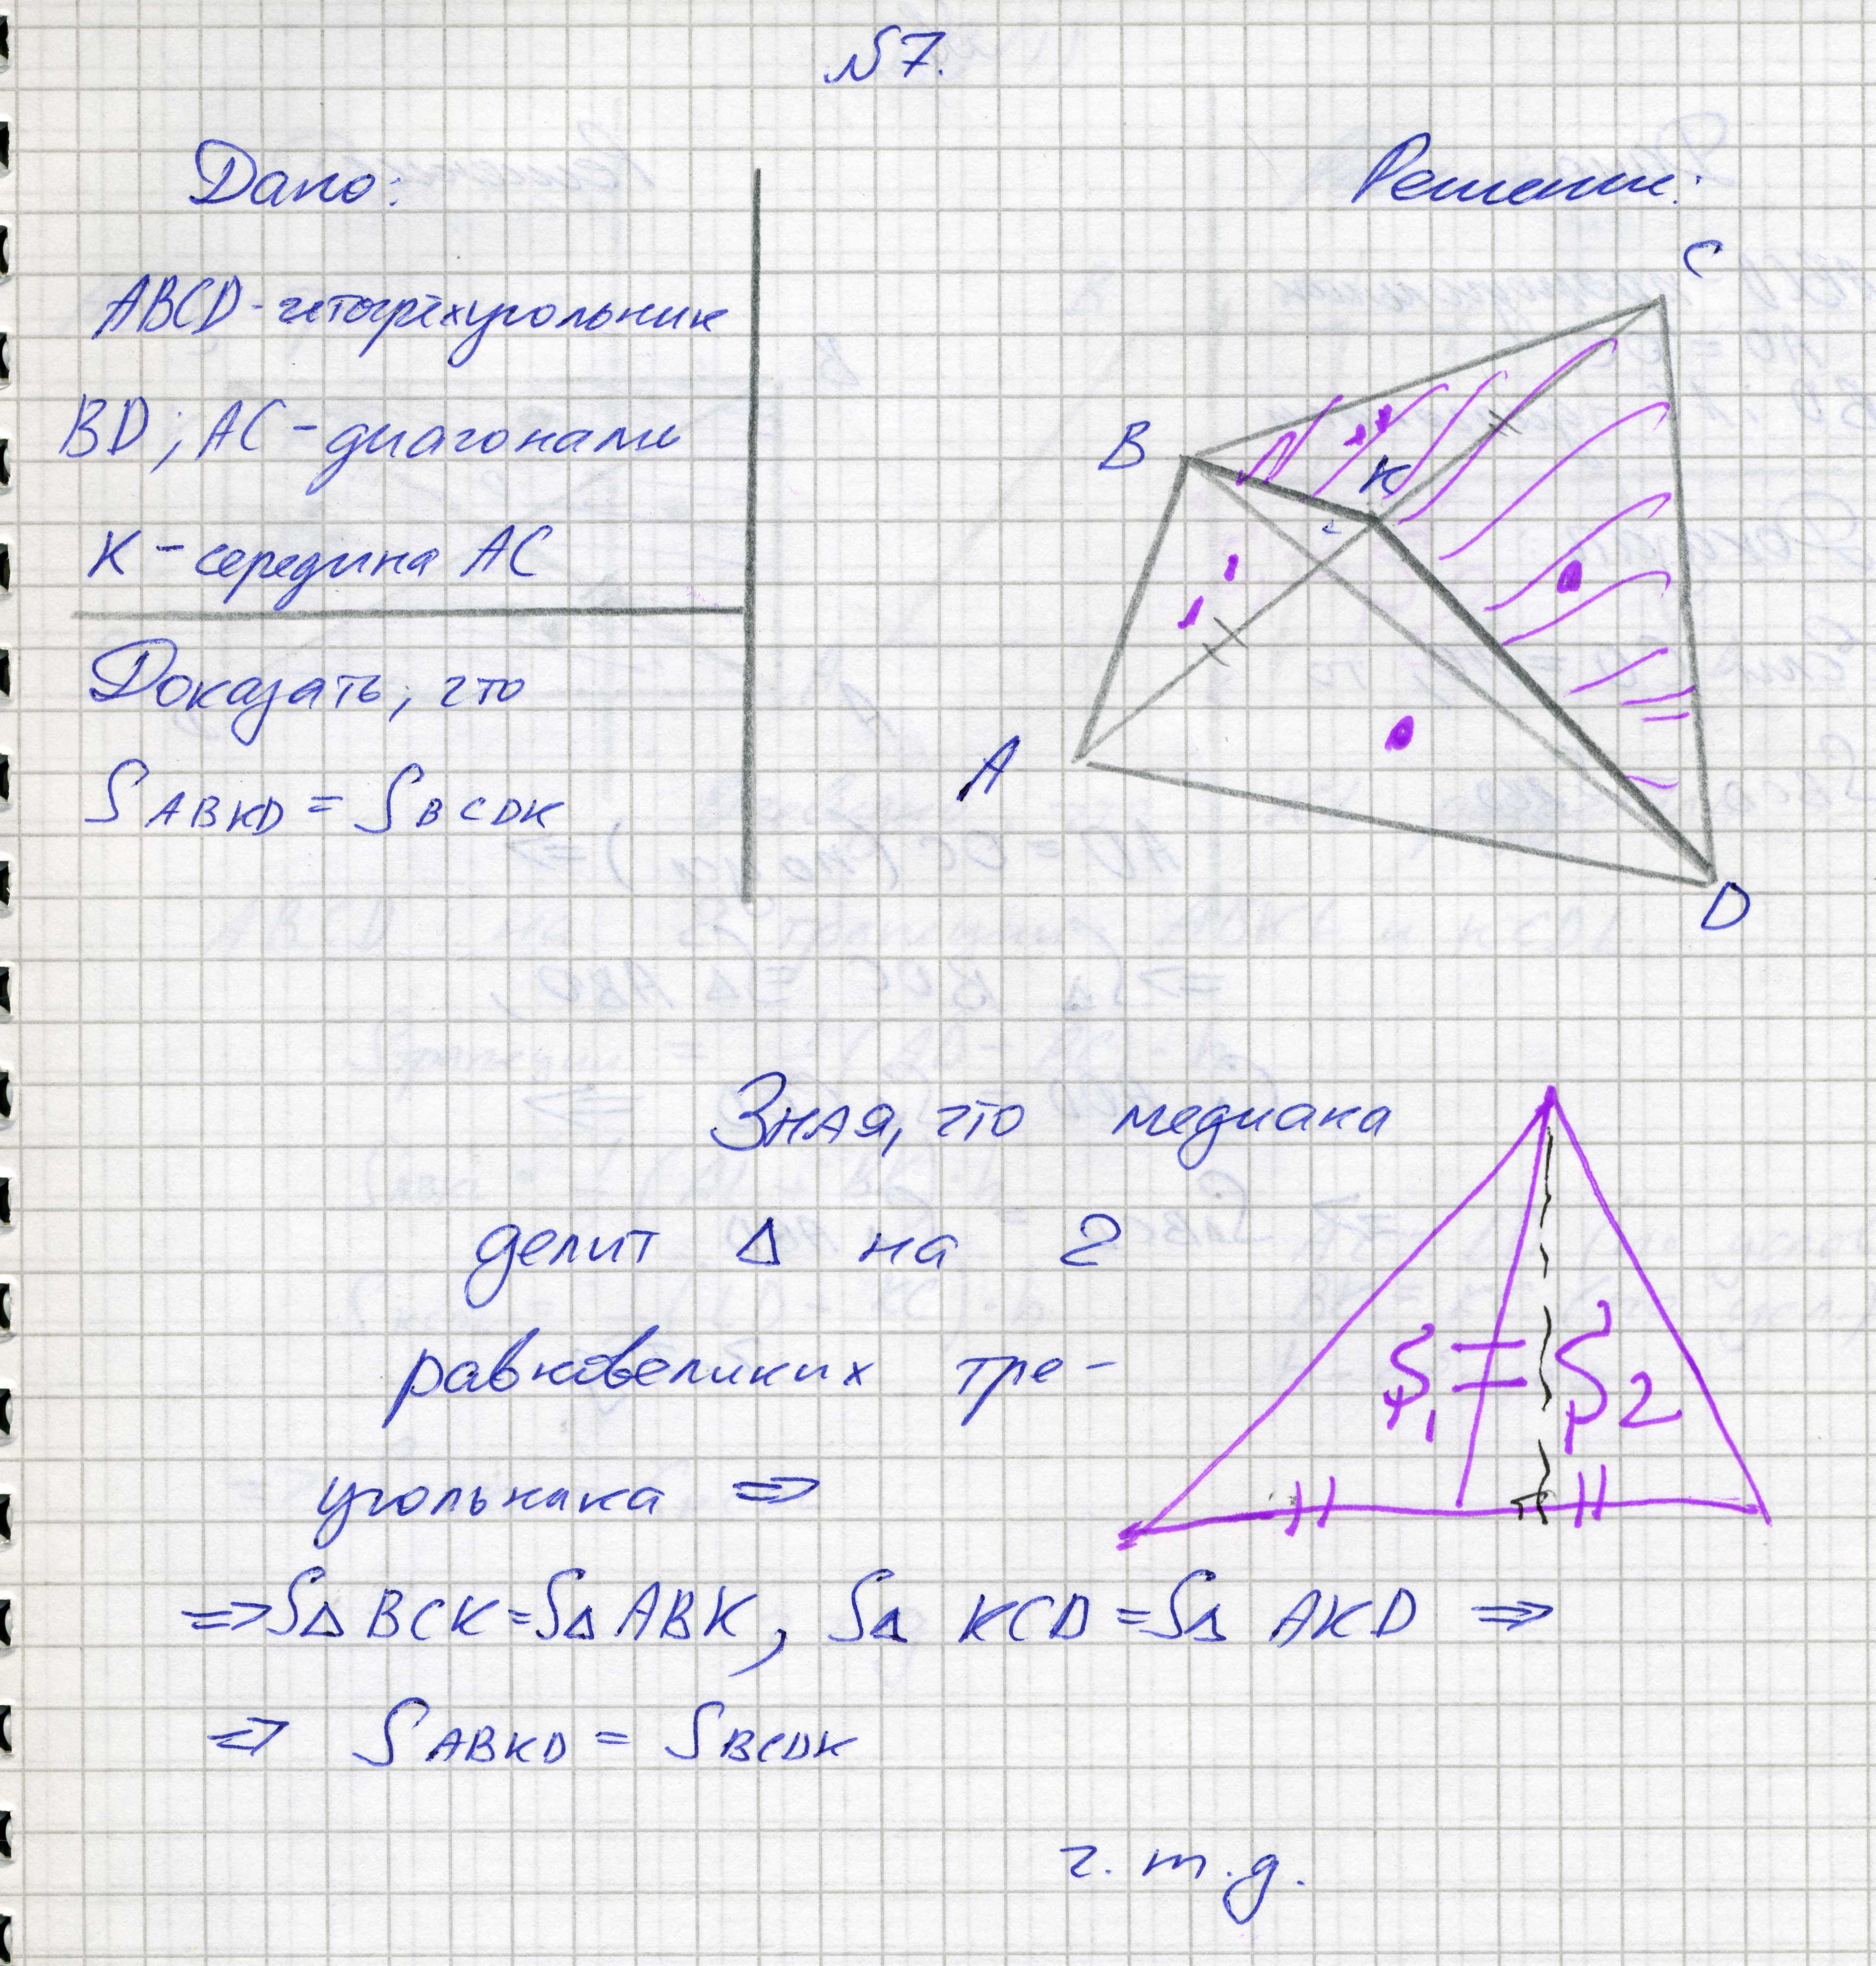 №7.
Дано:
ABCD - четырёхугольник
BD; AC - диагонали
K - середина AC
Доказать, что
S ABKD = S BCDK
Решение:
C
B
K
A
D
Зная, что медиана
делит Δ на 2
равновеликих тре-
угольника ⇒
S₁ = S₂
⇒ SΔ BCK = SΔ ABK, SΔ KCD = SΔ AKD ⇒
⇒ S ABKD = S BCDK
ч. т. д.